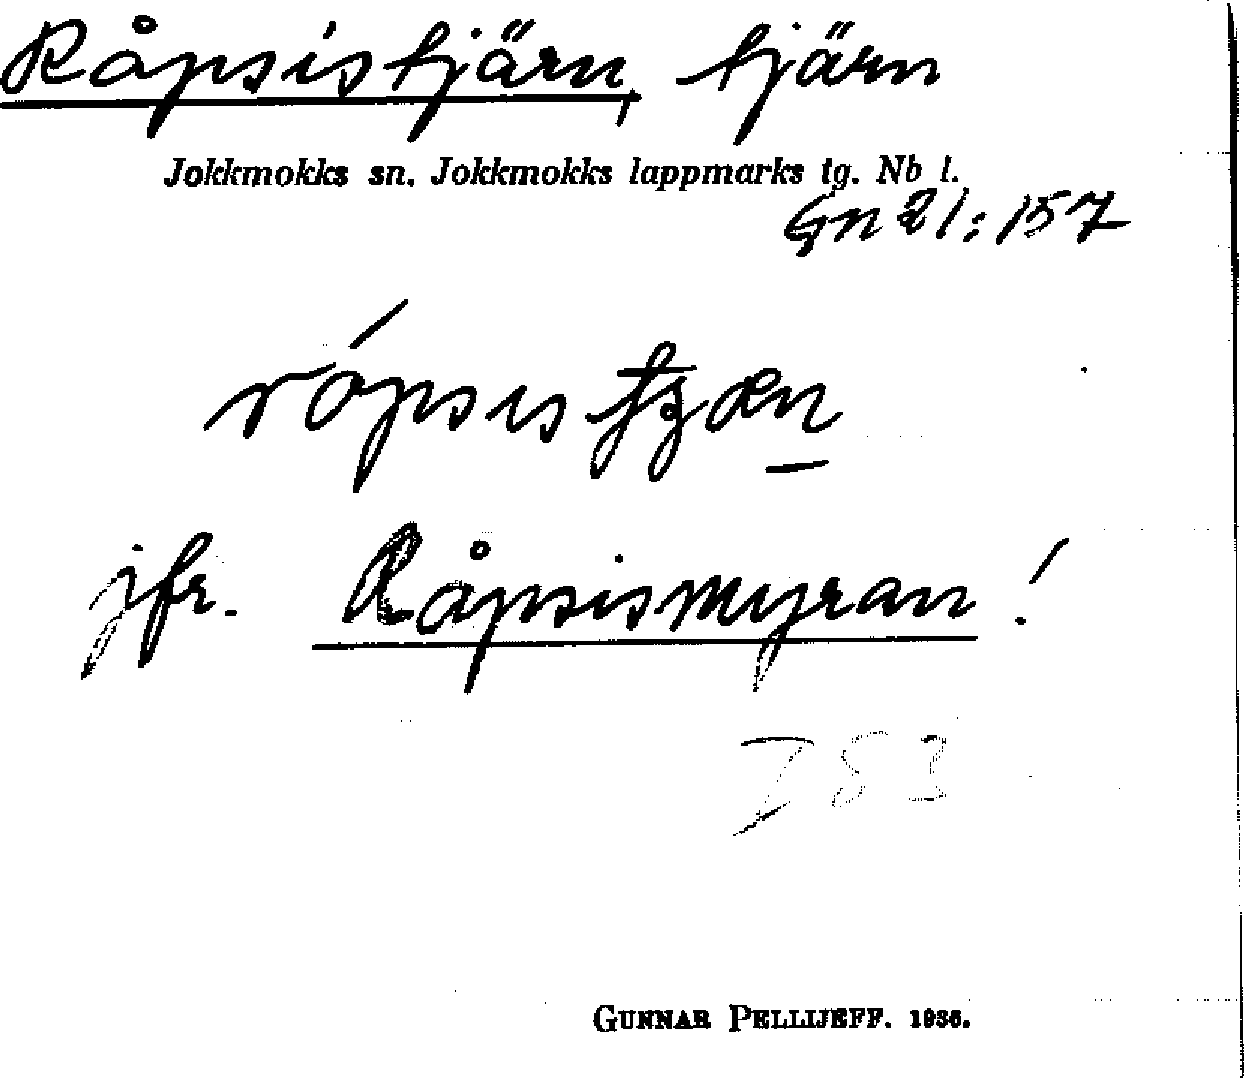 Råpsistjärn, tjärn
Jokkmokks sn. Jokkmokks lappmarks tg. Nb l.
Gn 21:157
jfr. Råpsismyran!
GUNNAR PELLIJEFF. 1936.